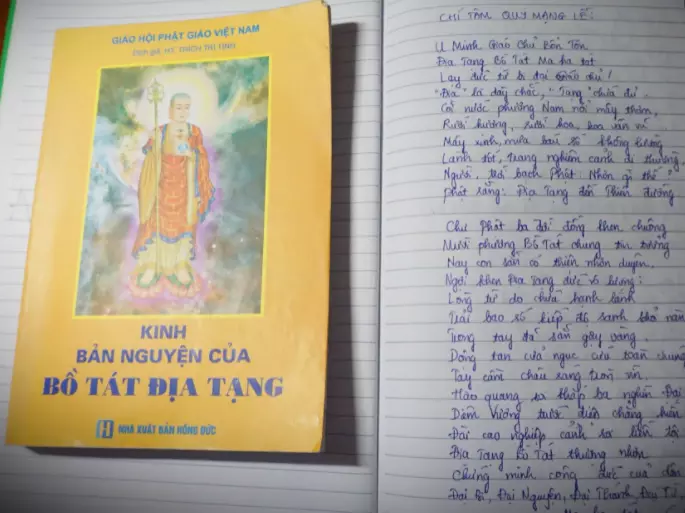 GIÁO HỘI PHẬT GIÁO VIỆT NAM
Dịch giả: HT. THÍCH TRÍ TỊNH
KINH
BẢN NGUYỆN CỦA
BỒ TÁT ĐỊA TẠNG
NHÀ XUẤT BẢN HỒNG ĐỨC
CHÍ TÂM QUY MẠNG LỄ:
U Minh Giáo Chủ Bổn Tôn
Địa Tạng Bồ Tát Ma ha tát
Lạy đức từ bi đại Giáo chủ!
"Địa" là dày chắc, "Tạng" chứa đủ.
Cõi nước phương Nam nổi mây thơm,
Rưới hương, rưới hoa, hoa vần vũ
Mây xinh, mưa báu số không lường
Lành tốt, trang nghiêm cảnh dị thường
Người, trời bạch Phật: Nhơn gì thế?
Phật rằng: Địa Tạng đến Thiên đường
Chư Phật ba đời đồng khen chuộng
Mười phương Bồ Tát chung tin tưởng
Nay con sẵn có thiện nhơn duyên.
Ngợi khen Địa Tạng đức vô lượng:
Lòng từ do chứa hạnh lành
Trải bao số kiếp độ sanh khỏi nàn
Trong tay đã sẵn gậy vàng.
Dộng tan cửa ngục cứu toàn chúng
Tay cầm châu sáng tròn vìn.
Hào quang soi thấp ba nghìn Đại
Diêm Vương trước điện chẳng hiền
Đài cao nghiệp cảnh soi liền tội
Địa Tạng Bồ Tát thượng nhơn
Chứng minh công đức của dân
Đại Bi, Đại Nguyện, Đại Thánh, Đại Từ,